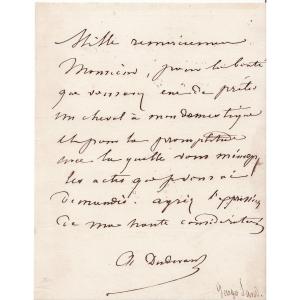 Mille remerciemens
Monsieur, pour la bonté
que vous avez eue de prêter
un cheval à mon domestique
et pour la promptitude
avec la quelle vous m'envoyez
les actes que je vous ai
demandés. agréez l'expression
de ma haute considération
A Dudevant
George Sand.